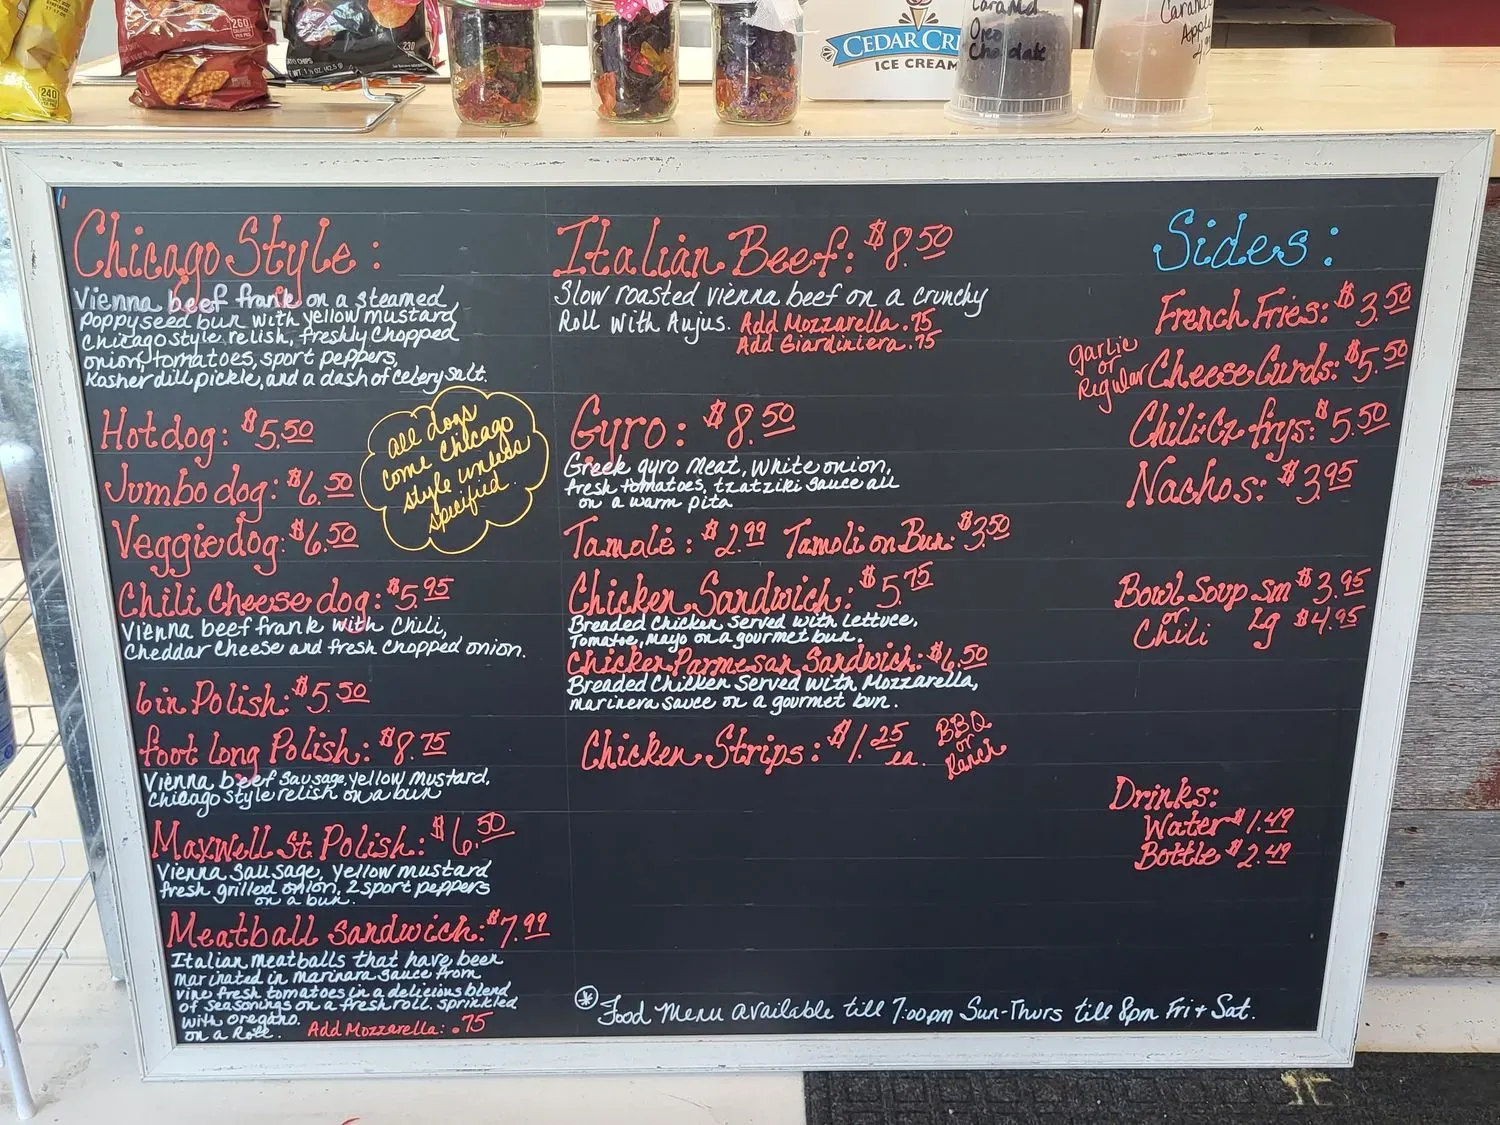 240
260
230
CEDAR CR
ICE CREAM
Caramel
Oreo
Chocolate
Caramel
Apple
Chicago Style:
Vienna beef frank on a steamed
Poppyseed bun with yellow mustard
Chicago style relish, freshly chopped
onion, tomatoes, sport peppers,
Kosher dill pickle, and a dash of celery salt.
Hot dog: $5.50
Jumbo dog: $6.50
Veggie dog: $6.50
all dogs
come Chicago
style unless
specified.
Chili Cheese dog: $5.95
Vienna beef frank with Chili,
Cheddar Cheese and fresh chopped onion.
6 in Polish: $5.50
foot long Polish: $8.75
Vienna beef Sausage, yellow mustard,
Chicago Style relish on a bun
Maxwell St. Polish: $6.50
Vienna Sausage, yellow mustard
fresh grilled onion, 2 sport peppers
on a bun.
Meatball sandwich: $7.99
Italian meatballs that have been
marinated in marinara sauce from
vine fresh tomatoes in a delicious blend
of seasonings on a fresh roll. sprinkled
with oregano.
on a Roll. Add Mozzarella: .75
Italian Beef: $8.50
Slow roasted vienna beef on a crunchy
Roll with Aujus. Add Mozzarella .75
Add Giardiniera .75
Gyro: $8.50
Greek gyro meat, white onion,
fresh tomatoes, tzatziki sauce all
on a warm pita
Tamale: $2.99 Tamoli on Bun: $3.50
Chicken Sandwich: $5.75
Breaded Chicken Served with Lettuce,
Tomatoe, Mayo on a gourmet bun.
Chicken Parmesan Sandwich: $6.50
Breaded Chicken Served with Mozzarella,
marinera sauce on a gourmet bun.
Chicken Strips: $1.25 ea. BBQ
or
Ranch
Sides:
French Fries: $3.50
garlic
or
Regular Cheese Curds: $5.50
Chili Cz frys: $5.50
Nachos: $3.95
Bowl Soup sm $3.95
or
Chili Lg $4.95
Drinks:
Water $1.49
Bottle $2.49
* Food Menu available till 7:00pm Sun-Thurs till 8pm Fri + Sat.